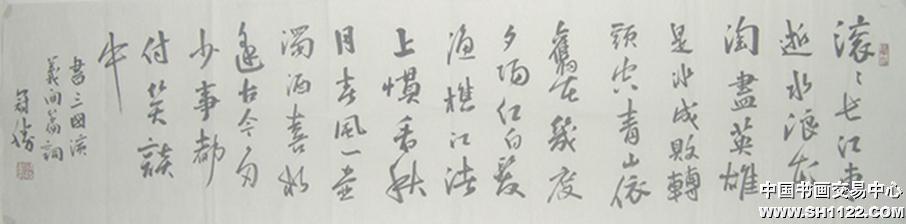 滚〻长江东
逝水浪花
淘盡英雄
是非成敗轉
頭空青山依
舊在幾度
夕陽红白髮
渔樵江渚
上慣看秋
月春風一壶
濁酒喜相
逢古今多
少事都
付笑談
中
書三国演
義開篇詞
中国书画交易中心
www.SH1122.com